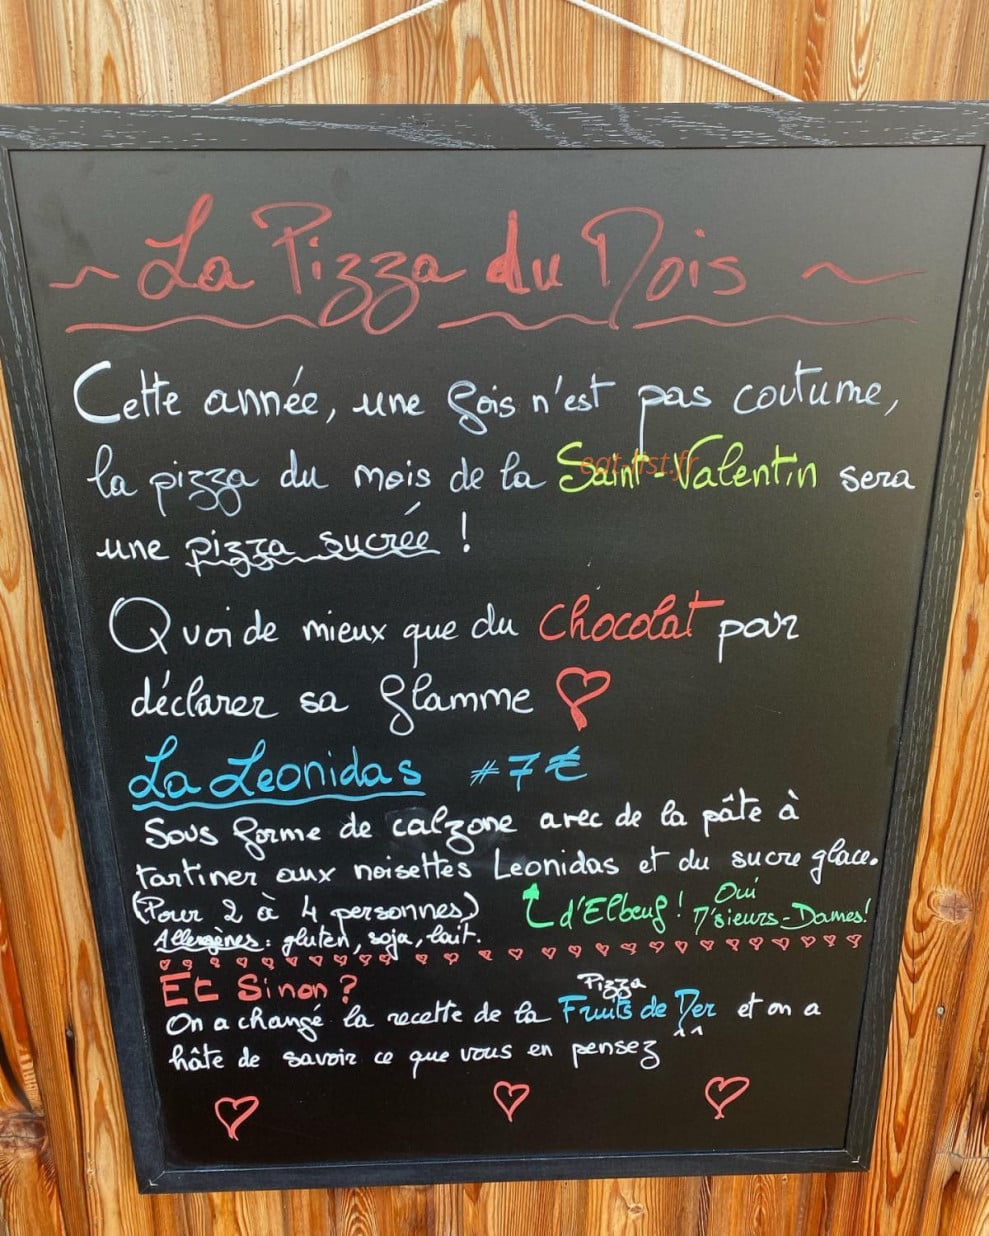 ~ La Pizza du Mois ~
Cette année, une fois n'est pas coutume,
la pizza du mois de la Saint-Valentin sera
eat-list.fr
une pizza sucrée !
Quoi de mieux que du Chocolat pour
déclarer sa flamme ♡
La Leonidas #7€
Sous forme de calzone avec de la pâte à
tartiner aux noisettes Leonidas et du sucre glace.
(Pour 2 à 4 personnes) d'Elbeuf ! Oui M'sieurs-Dames!
Allergènes : gluten, soja, lait.
Et Sinon ?
On a changé la recette de la Pizza Fruits de Mer et on a
hâte de savoir ce que vous en pensez ^^